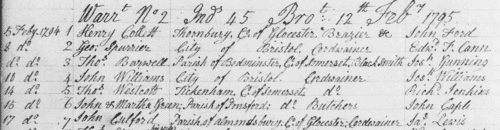 Warrt. No 2 Ind 45 Brot. 12th Feby 1795
5 Feby. 1794 1 Henry Collett Thornbury, Co. of Glocester Brazier &c John Ford
8 do. 2 Geo. Spurrier City of Bristol Cordwainer Edwd. T. Cann
do do. 3 Thos. Barwell Parish of Bedminster, C. of Somerset, Black Smith Jos. Gunning
10 do. 4 John Williams City of Bristol Cordwainer Jos. Williams
14 do 5 Thos. Westcott Tickenham, C. of Somerset do Richd. Jenkins
15 do 6 John & Martha Green; Parish of do. Butchers John Caple
17 do. 7 John Parish of almondsbury C. of Glocester; Cordwainer Jas. Lewis